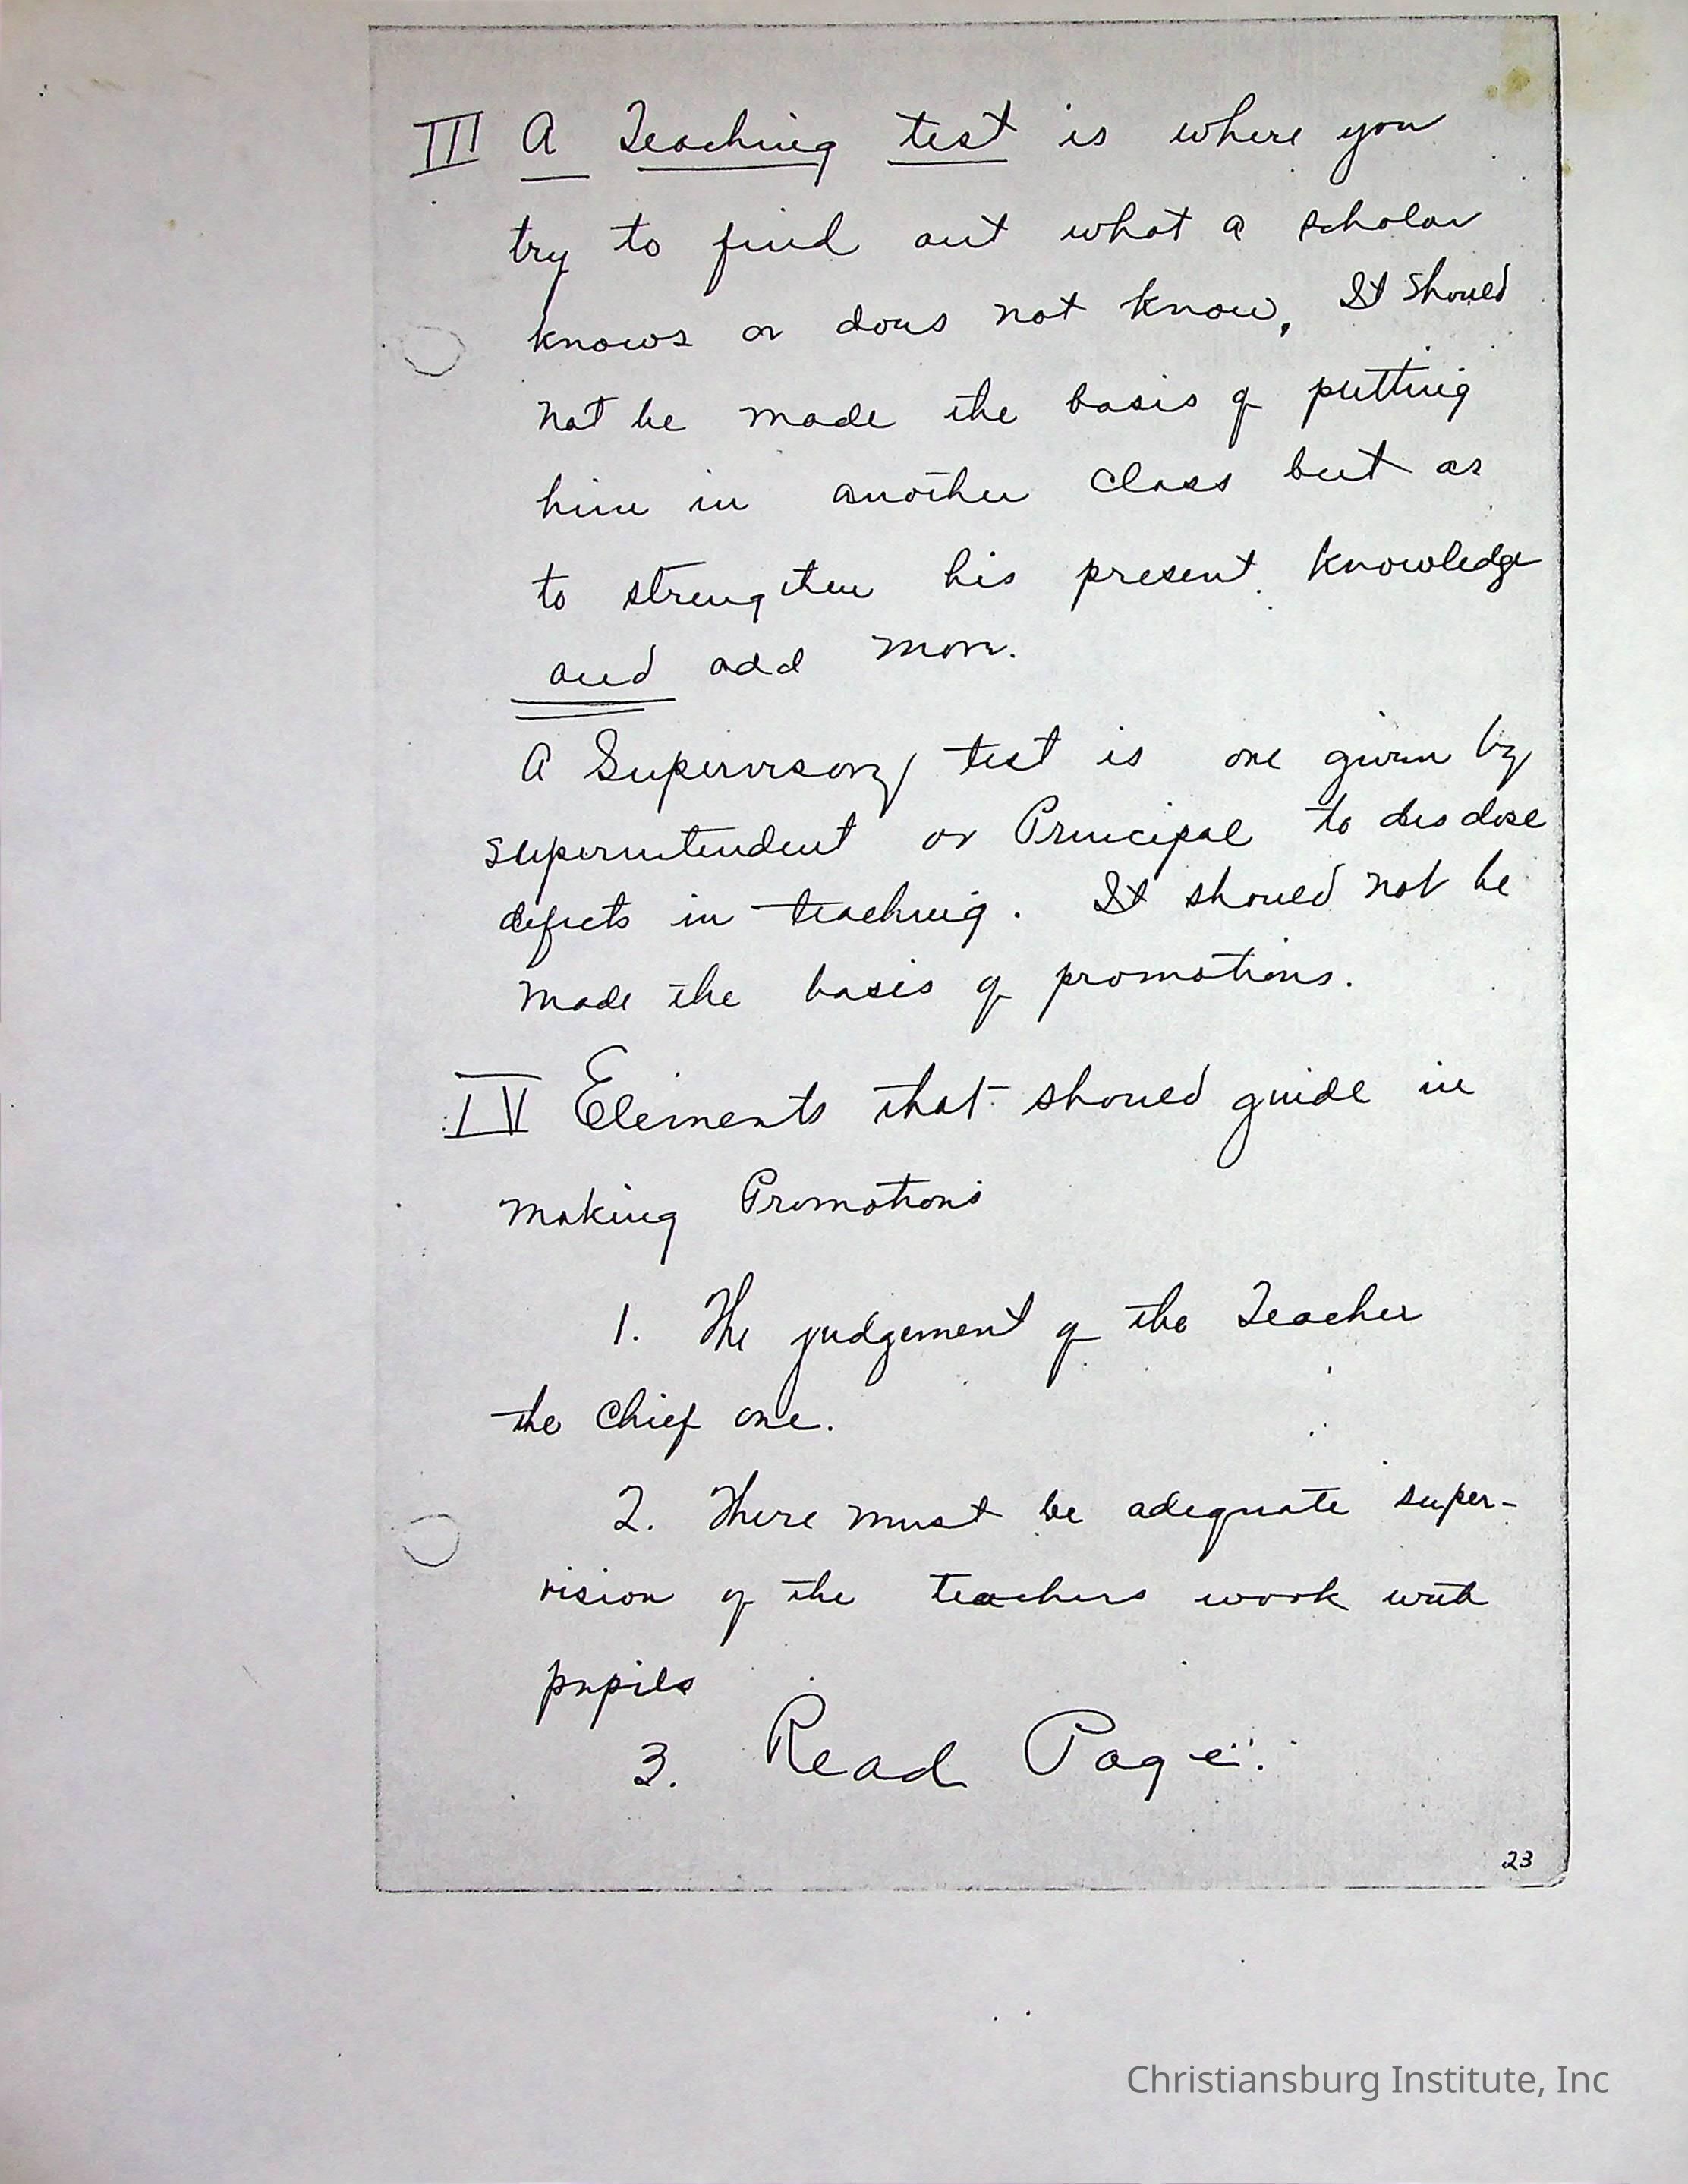 III A Teaching test is where you
try to find out what a scholar
knows or does not know, It should
not be made the basis of putting
him in another class but as
to strengthen his present knowledge
and add more.
A Supervisory test is one given by
superintendent or Principal to disclose
defects in teaching. It should not be
made the basis of promotions.
IV Elements that should guide in
making Promotions
1. The judgement of the Teacher
the chief one.
2. There must be adequate super-
vision of the teachers work with
pupils
3. Read Page.
23
Christiansburg Institute, Inc